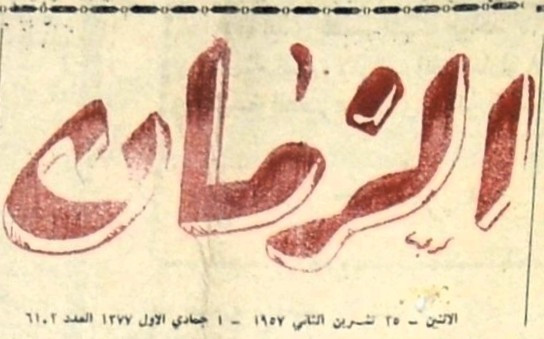 الزمان
الاثنين – ٢٥ تشرين الثاني ١٩٥٧ – ١ جمادي الاول ١٣٧٧ العدد ٦١٠٢